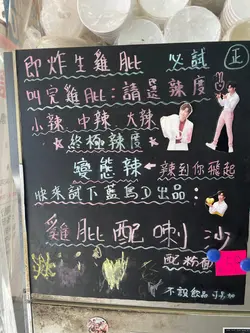 即炸生雞髀 必試 正
叫完雞髀：請選辣度
小辣 中辣 大辣
★終極辣度
變態辣 辣到你飛起
快來試下藍馬D出品：
雞髀配喇沙
配粉麵
不設飲品